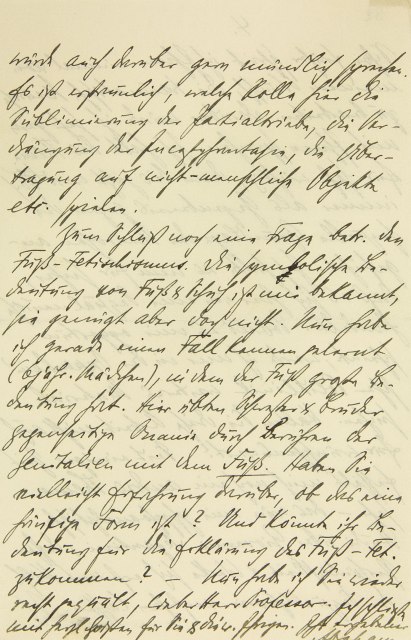 würde auch darüber gern mündlich sprechen.
Es ist erstaunlich, welche Rolle hier die
Sublimierung der Partialtriebe, die Ver-
drängung der Inzestphantasie, die Über-
tragung auf nicht-menschliche Objekte
etc. spielen.
Zum Schluß noch eine Frage betr. den
Fuß-Fetischismus. Die symbolische Be-
deutung von Fuß & Schuh ist mir bekannt,
sie genügt aber doch nicht. Nun habe
ich gerade einen Fall kennen gelernt
jähr. Mädchen), in dem der Fuß große Be-
deutung hat. Hier übten Schwester & Bruder
gegenseitige Onanie durch Berühren der
Genitalien mit dem Fuß. Haben Sie
vielleicht Erfahrung darüber, ob das eine
häufige Form ist? Und könnte ihr Be-
deutung für die Erklärung des Fuß-Fet.
zukommen? — Nun habe ich Sie wieder
recht gequält, lieber Herr Professor. Ich schließe
mit herzl. Grüßen für Sie & die Ihrigen. Ihr ergebener